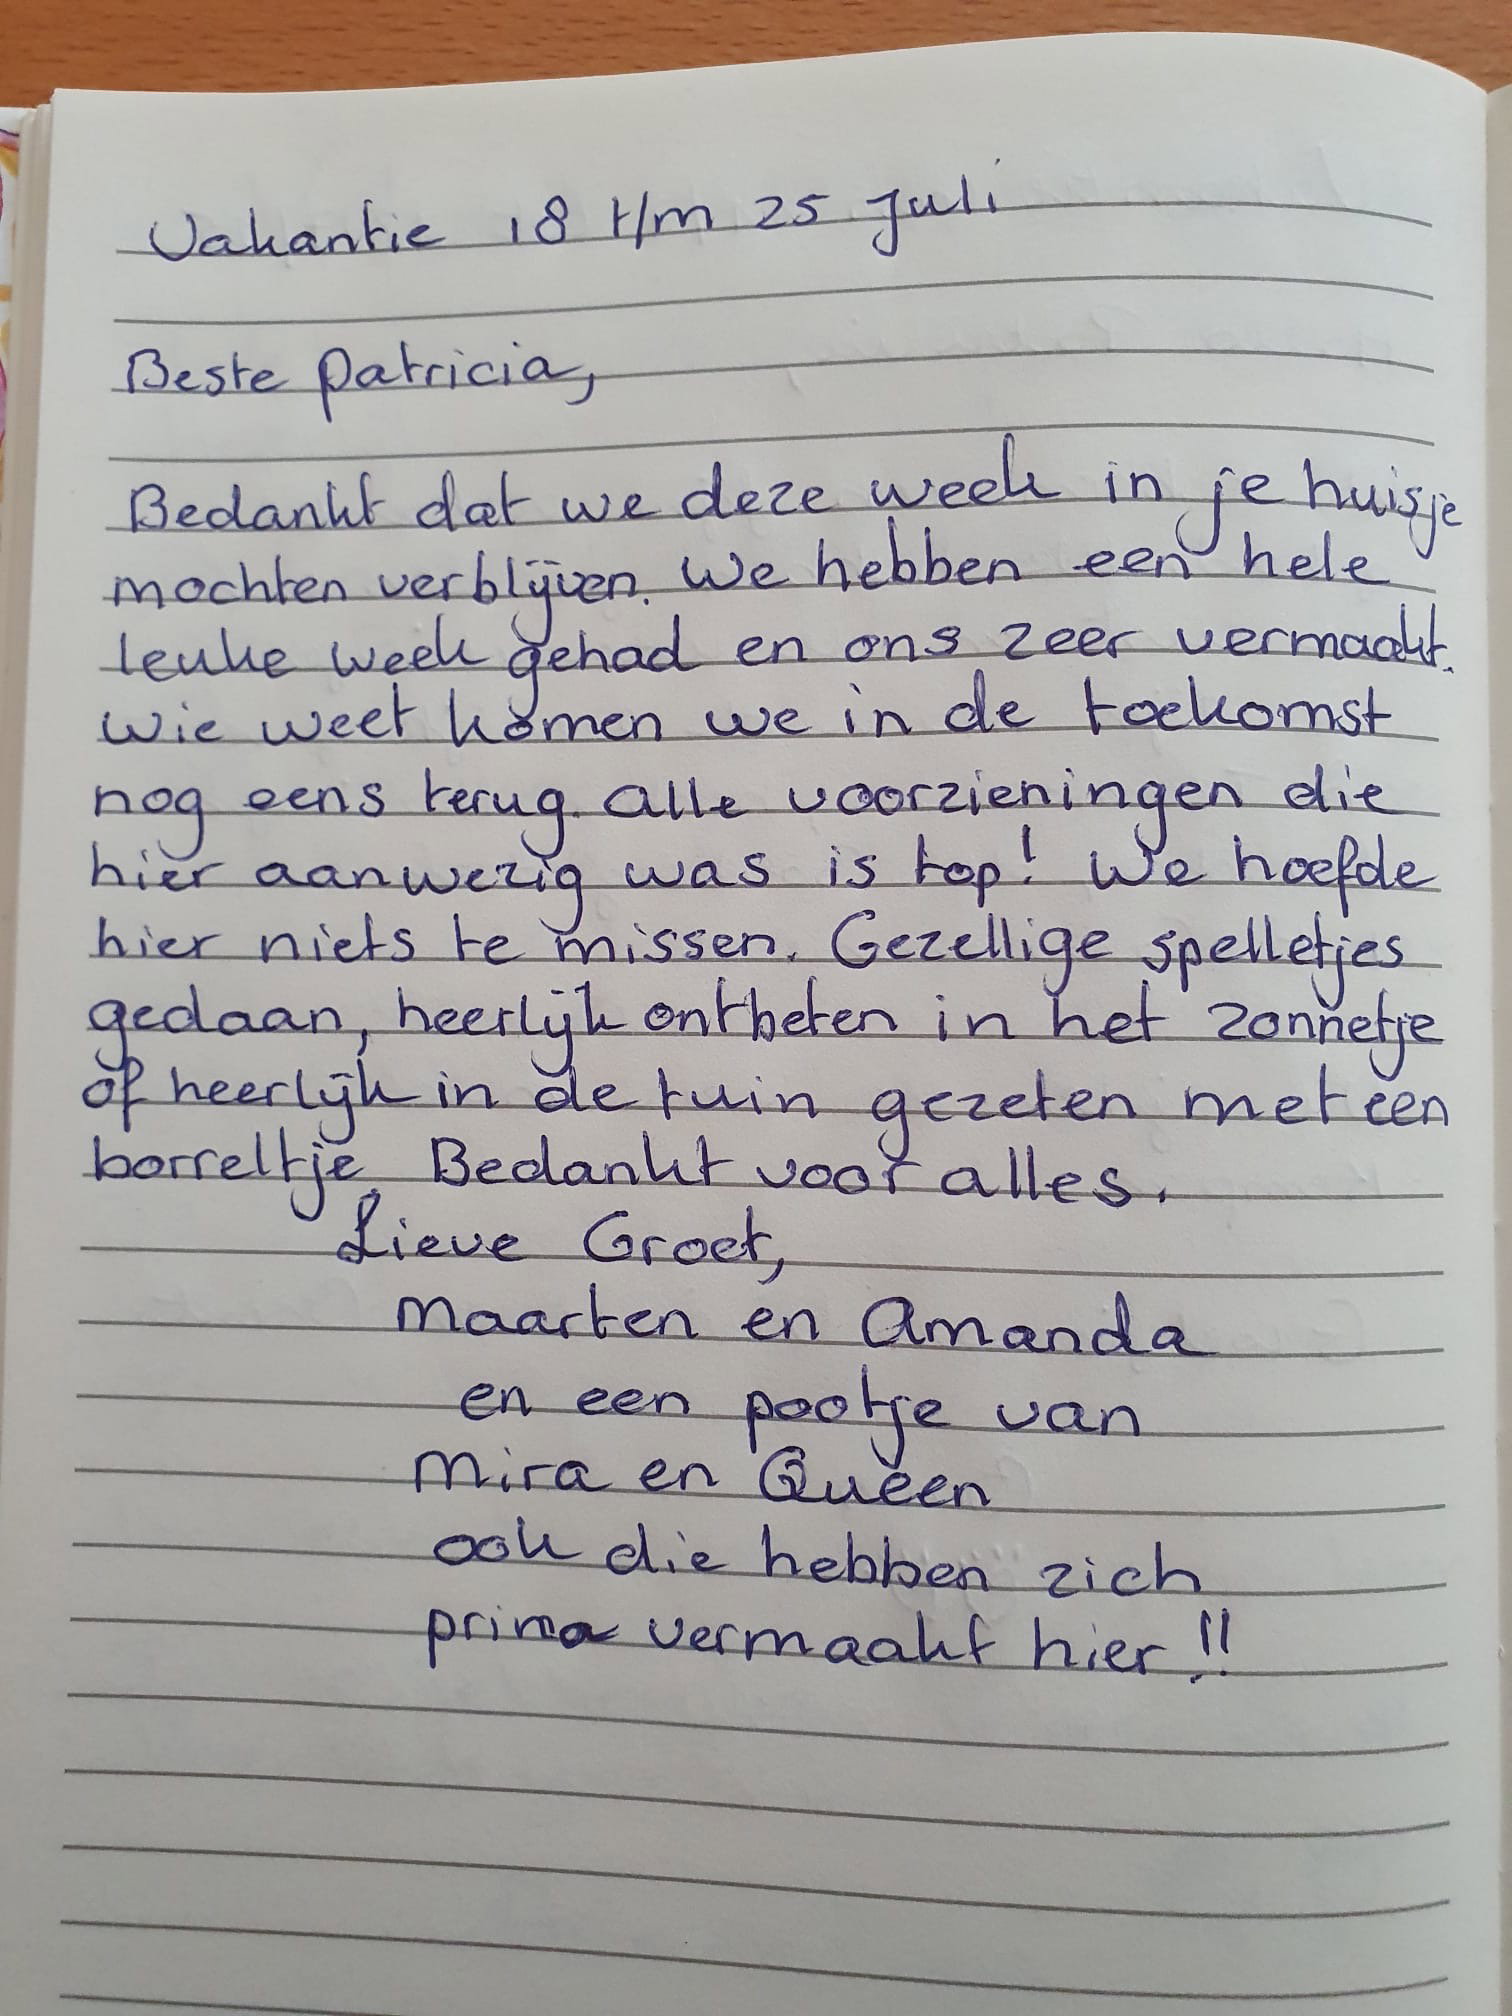 Vakantie 18 t/m 25 juli
Beste Patricia,
Bedankt dat we deze week in je huisje
mochten verblijven. We hebben een hele
leuke week gehad en ons zeer vermaakt.
Wie weet komen we in de toekomst
nog eens terug. Alle voorzieningen die
hier aanwezig was is top! We hoefde
hier niets te missen. Gezellige spelletjes
gedaan, heerlijk ontbeten in het zonnetje
of heerlijk in de tuin gezeten met een
borreltje. Bedankt voor alles.
Lieve Groet,
Maarten en Amanda
en een pootje van
Mira en Queen
ook die hebben zich
prima vermaakt hier!!